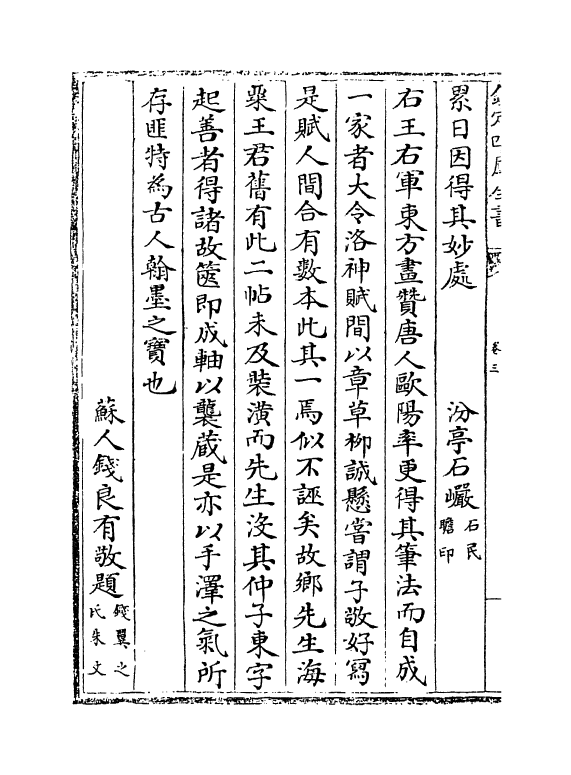 欽定四庫全書
卷三
累日因得其妙處　汾亭石巖石民
瞻印
右王右軍東方畫贊唐人歐陽率更得其筆法而自成
一家者大令洛神賦間以章草柳誠懸嘗謂子敬好寫
是賦人間合有數本此其一焉似不誣矣故鄉先生海
粟王君舊有此二帖未及裝潢而先生沒其仲子東字
起善者得諸故篋即成軸以襲蔵是亦以手澤之氣所
存匪特為古人翰墨之寶也
蘇人錢良有敬題錢翼之
氏朱文